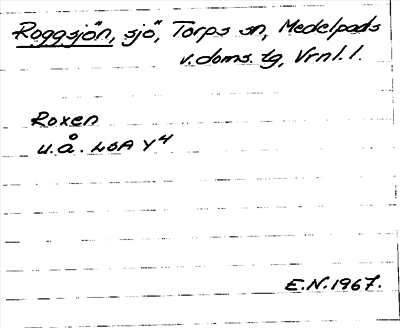 Roggsjön, sjö, Torps sn, Medelpads
v. doms. tg, Vrnl. l.
Roxen
u.å. LSA Y4
E.N. 1967.